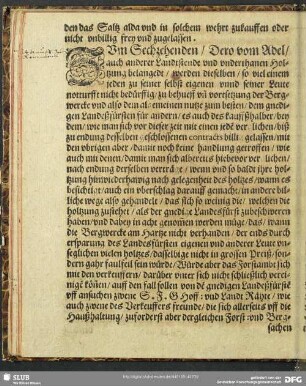 den das Saltz alda vnd in solchem wehrt zukauffen oder
nicht vnbillig frey vnd zugelassen.
Vm Sechzehenden / Dero vom Adel /
auch anderer Landtstende vnd vnderthanen Hol-
tzung belangedt / werden dieselben / so viel einem
jeden zu seiner selbst eigenen vnnd seiner Leute
notturfft nicht bedürfftig / zu behuff vn fortsetzung der Berg-
wercke vnd also dem al gemeinen nutze zum besten / dem gnedi-
gen Landesfürsten für andern / es auch des kauffs halber / bey
dem / wie man sich vor dieser zeit mit einem jedē ver lichen / biß
zu endung desselben geschlossenen contracts billig gelassen / mit
den vbrigen aber / damit noch keine handlung getroffen / wie
auch mit denen / damit man sich albereits hiebevor ver lichen /
nach endung derselben vertrege / wenn vnd so baldt jhre hol-
tzung hinwiederhawig nach gelegenheit des holtzes / wann es
besichtiget / auch ein vberschlag darauff gemacht / in andere bil-
liche wege also gehandelt / das sich so weinig die / welchen die
holtzung zustehet / als der gnedige Landesfürst zubeschweren
haben / vnd dabey in acht genomen werden müge / das / wann
die Bergwercke am Hartze nicht verhanden / der ends durch
ersparung des Landesfürsten eigenen vnd anderer Leute vn-
seglichen vielen holtzes / dasselbige nicht in grossen Preiß / son-
dern gahr faulfeil sein / Würde aber das Forstambt sich
mit den verkeuffern / darüber vnter sich nicht schließlich verei-
nigē können / auff den fall sollen von dē gnedigen Landesfürstē
vff ansuchen zwene S. F. G Hoff: vnd Landt Rähte / wie
auch zwene des Verkeuffers freunde / die sich allerseits vff die
Haußhaltung / zuforderst aber dergleichen Forst: vnd Berg-
sachen